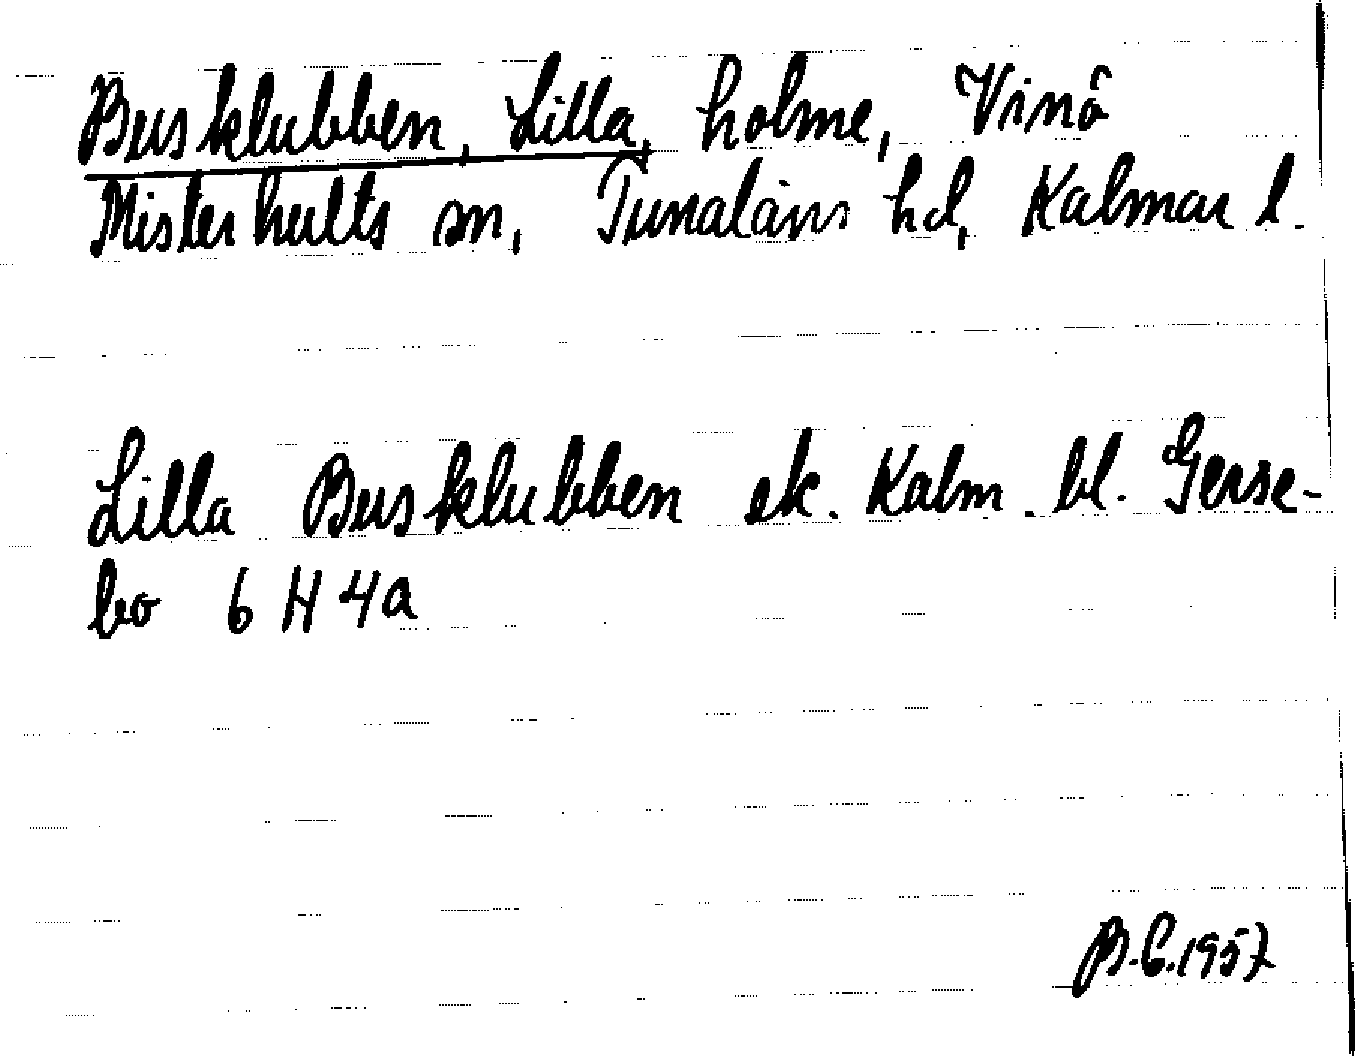 Busklubben, Lilla, holme, Vinö
Misterhults sn, Tunaläns hd, Kalmar l.
Lilla Busklubben ek. Kalm. bl. Gerse-
bo 6 H 4a
B.E. 1957